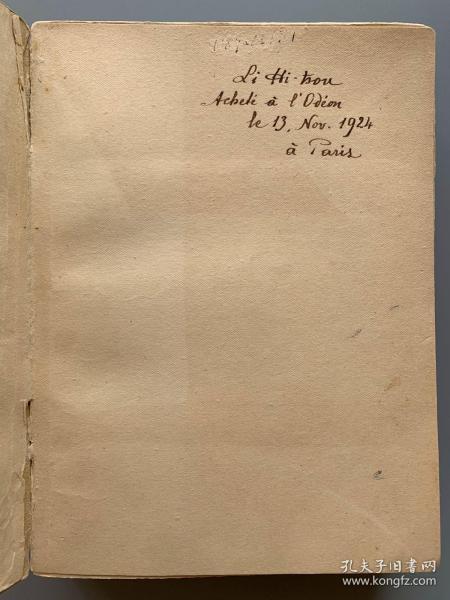 Li Hi-tsou
Acheté à l'Odéon
le 13, Nov. 1924
à Paris
孔夫子旧书网
www.kongfz.com